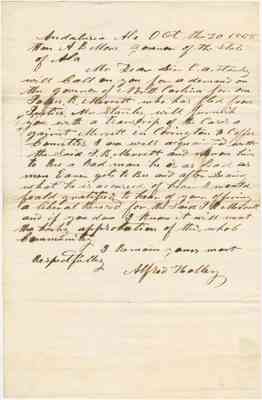 Andalusia Ala Oct the 20 1858
Hon A B Moore Governor of the State
of Ala
My Dear Sir C. A. Stanley
will Call on you for a demand on
the governor of North Carolina for one
James R. Merrett who has fled from
Justice Mr Stanley will furnish
you with a transcript of the Cases
against Merrett in Covington & Coffee
Counties I am well acquainted with
the Said J R Merrett and know him
to be a Bad man he is as bad as
men Ever gets to Be and after Doing
what he is accused of here I would
feel gratified to hear of your offering
a liberal reward for the Said J R Merrett
and if you do I know it will meet
the hearty approbation of this whole
Community
I Remain yours most
Respectfully
Alfred Holley